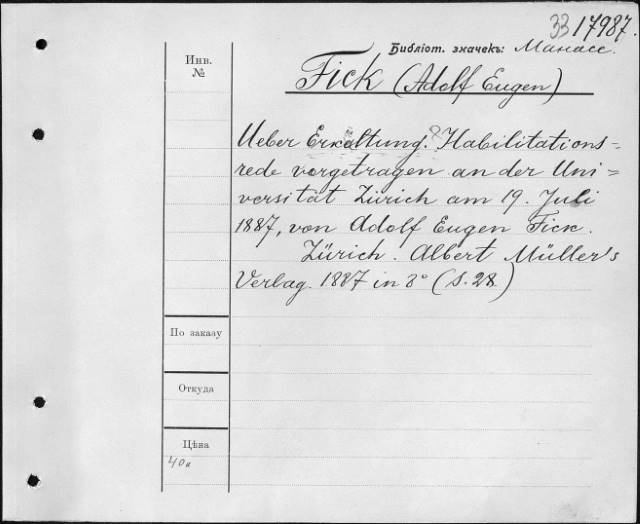 33 17987.
Библіот. значекъ: Манасс.
Инв.
№
Fick (Adolf Eugen)
Ueber Erkältung. Habilitations-
rede vorgetragen an der Uni=
versität Zürich am 19. Juli
1887, von Adolf Eugen Fick.
Zürich. Albert Müller's
Verlag. 1887 in 8° (S. 28)
По заказу
Откуда
Цѣна
40к